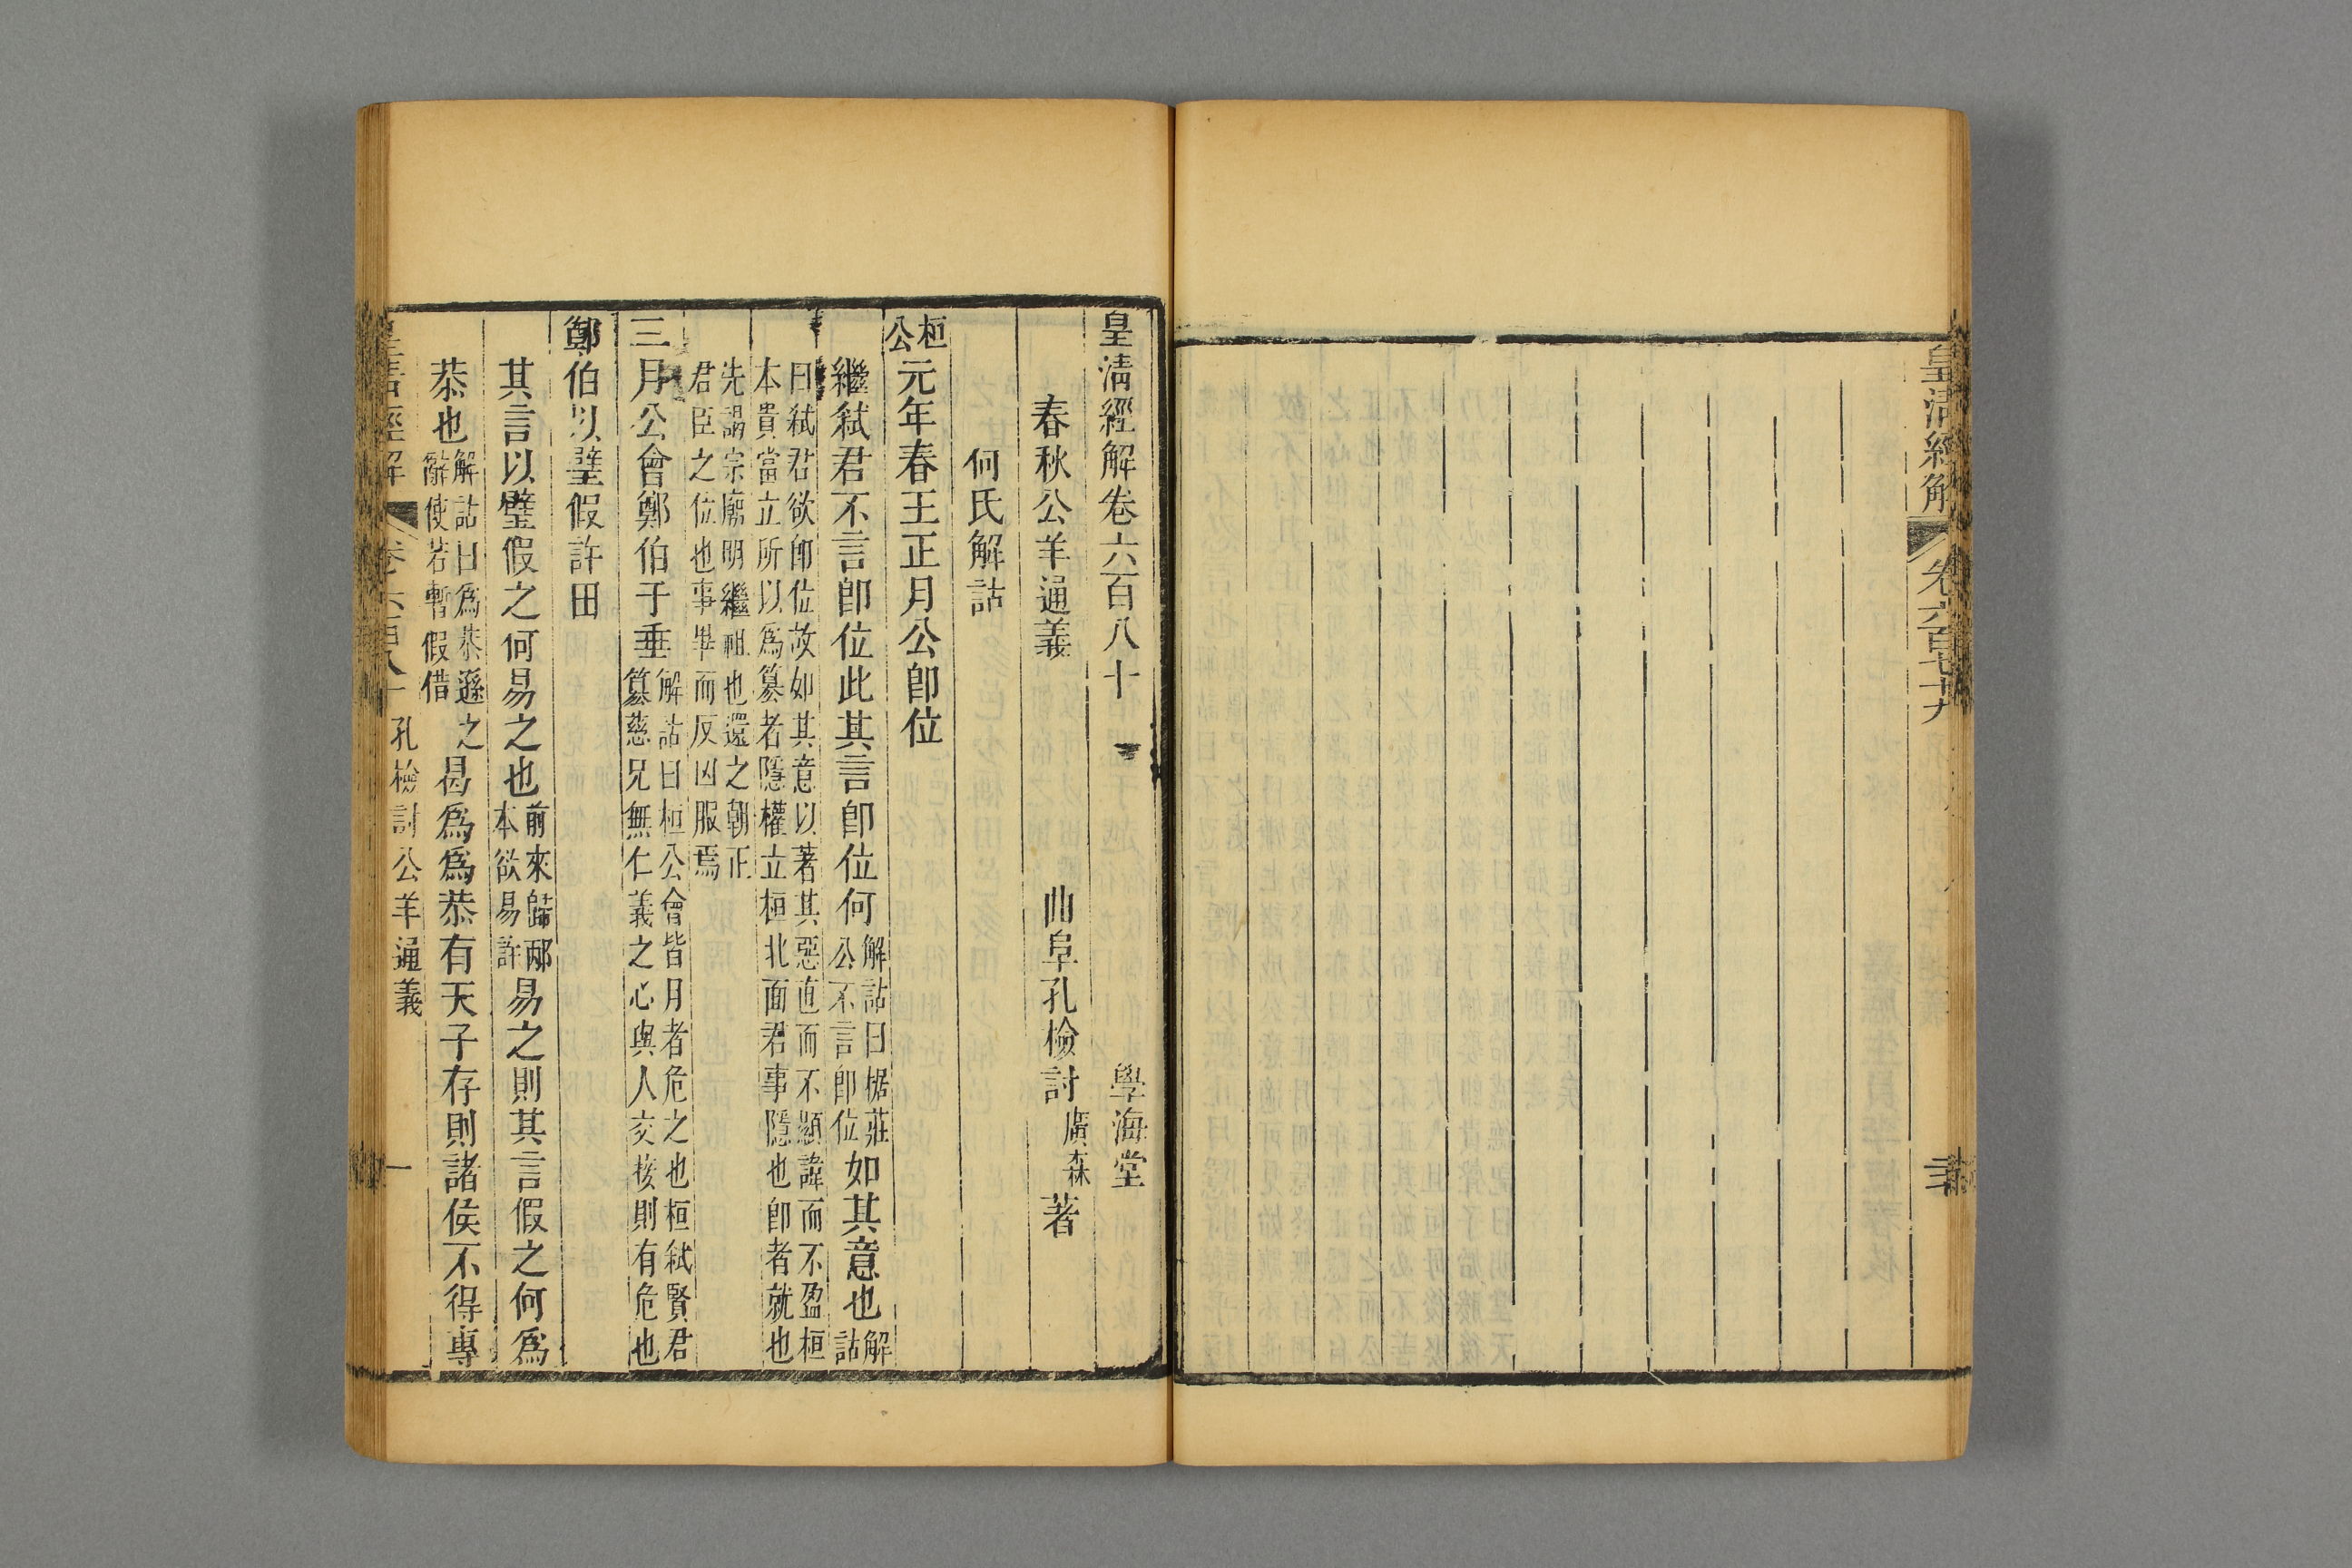 皇清經解
卷六百七十九
皇清經解卷六百八十
學海堂
春秋公羊通義
曲阜孔檢討廣森著
何氏解詁
桓公元年春王正月公卽位
繼弒君不言卽位此其言卽位何解詁曰據莊公不言卽位如其意也解詁
曰弒君欲卽位故如其意以著其惡直而不顯諱而不盈桓
本貴當立所以爲篡者隱權立桓北面君事隱也卽者就也
先謁宗廟明繼祖也還之朝正
君臣之位也事畢而反凶服焉
三月公會鄭伯于垂解詁曰桓公會皆月者危之也桓弒賢君
篡慈兄無仁義之心與人交接則有危也
鄭伯以璧假許田
其言以璧假之何易之也前來歸邴本欲易許易之則其言假之何爲
恭也解詁曰爲恭遜之辭使若暫假借曷爲爲恭有天子存則諸侯不得專
孔檢討公羊通義
一